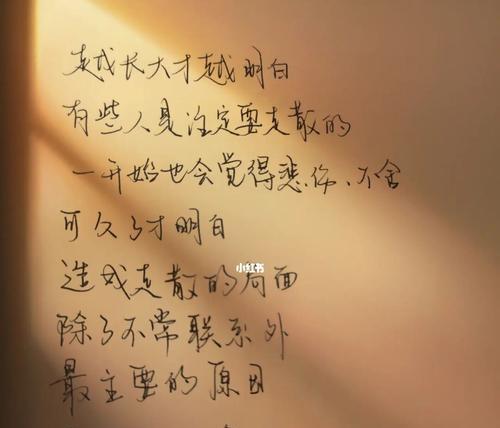 越长大才越明白
有些人是注定要走散的
一开始也会觉得悲伤、不舍
可久了才明白
造成走散的局面
小红书
除了不常联系外
最主要的原因